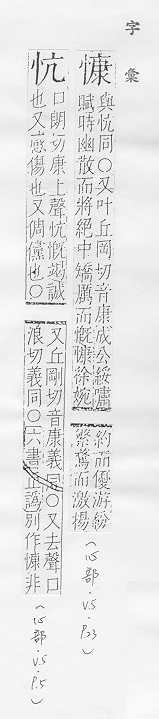 字彙
慷 與忼同○又叶丘岡切音康成公綏嘯
賦時幽散而將絕中矯厲而慨慷徐婉
約而優游紛
繁騖而激揚
(心部.V.5.P.33)
忼 口朗切康上聲忼慨竭誠
也又悲傷也又倜儻也○
又丘剛切音康義同○又去聲口
浪切義同○六書正譌別作慷非
(心部.V.5.P.5)